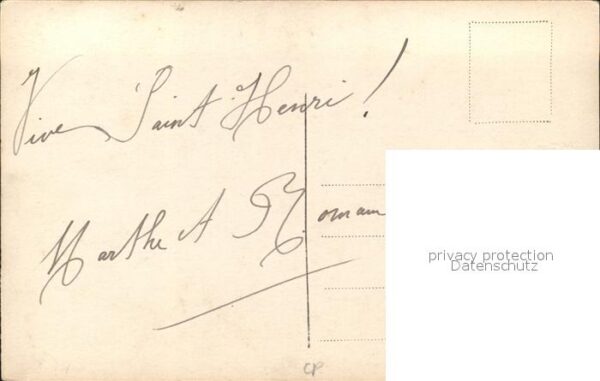 Vive Saint Henri !
Marthe et Romain
privacy protection
Datenschutz
CP